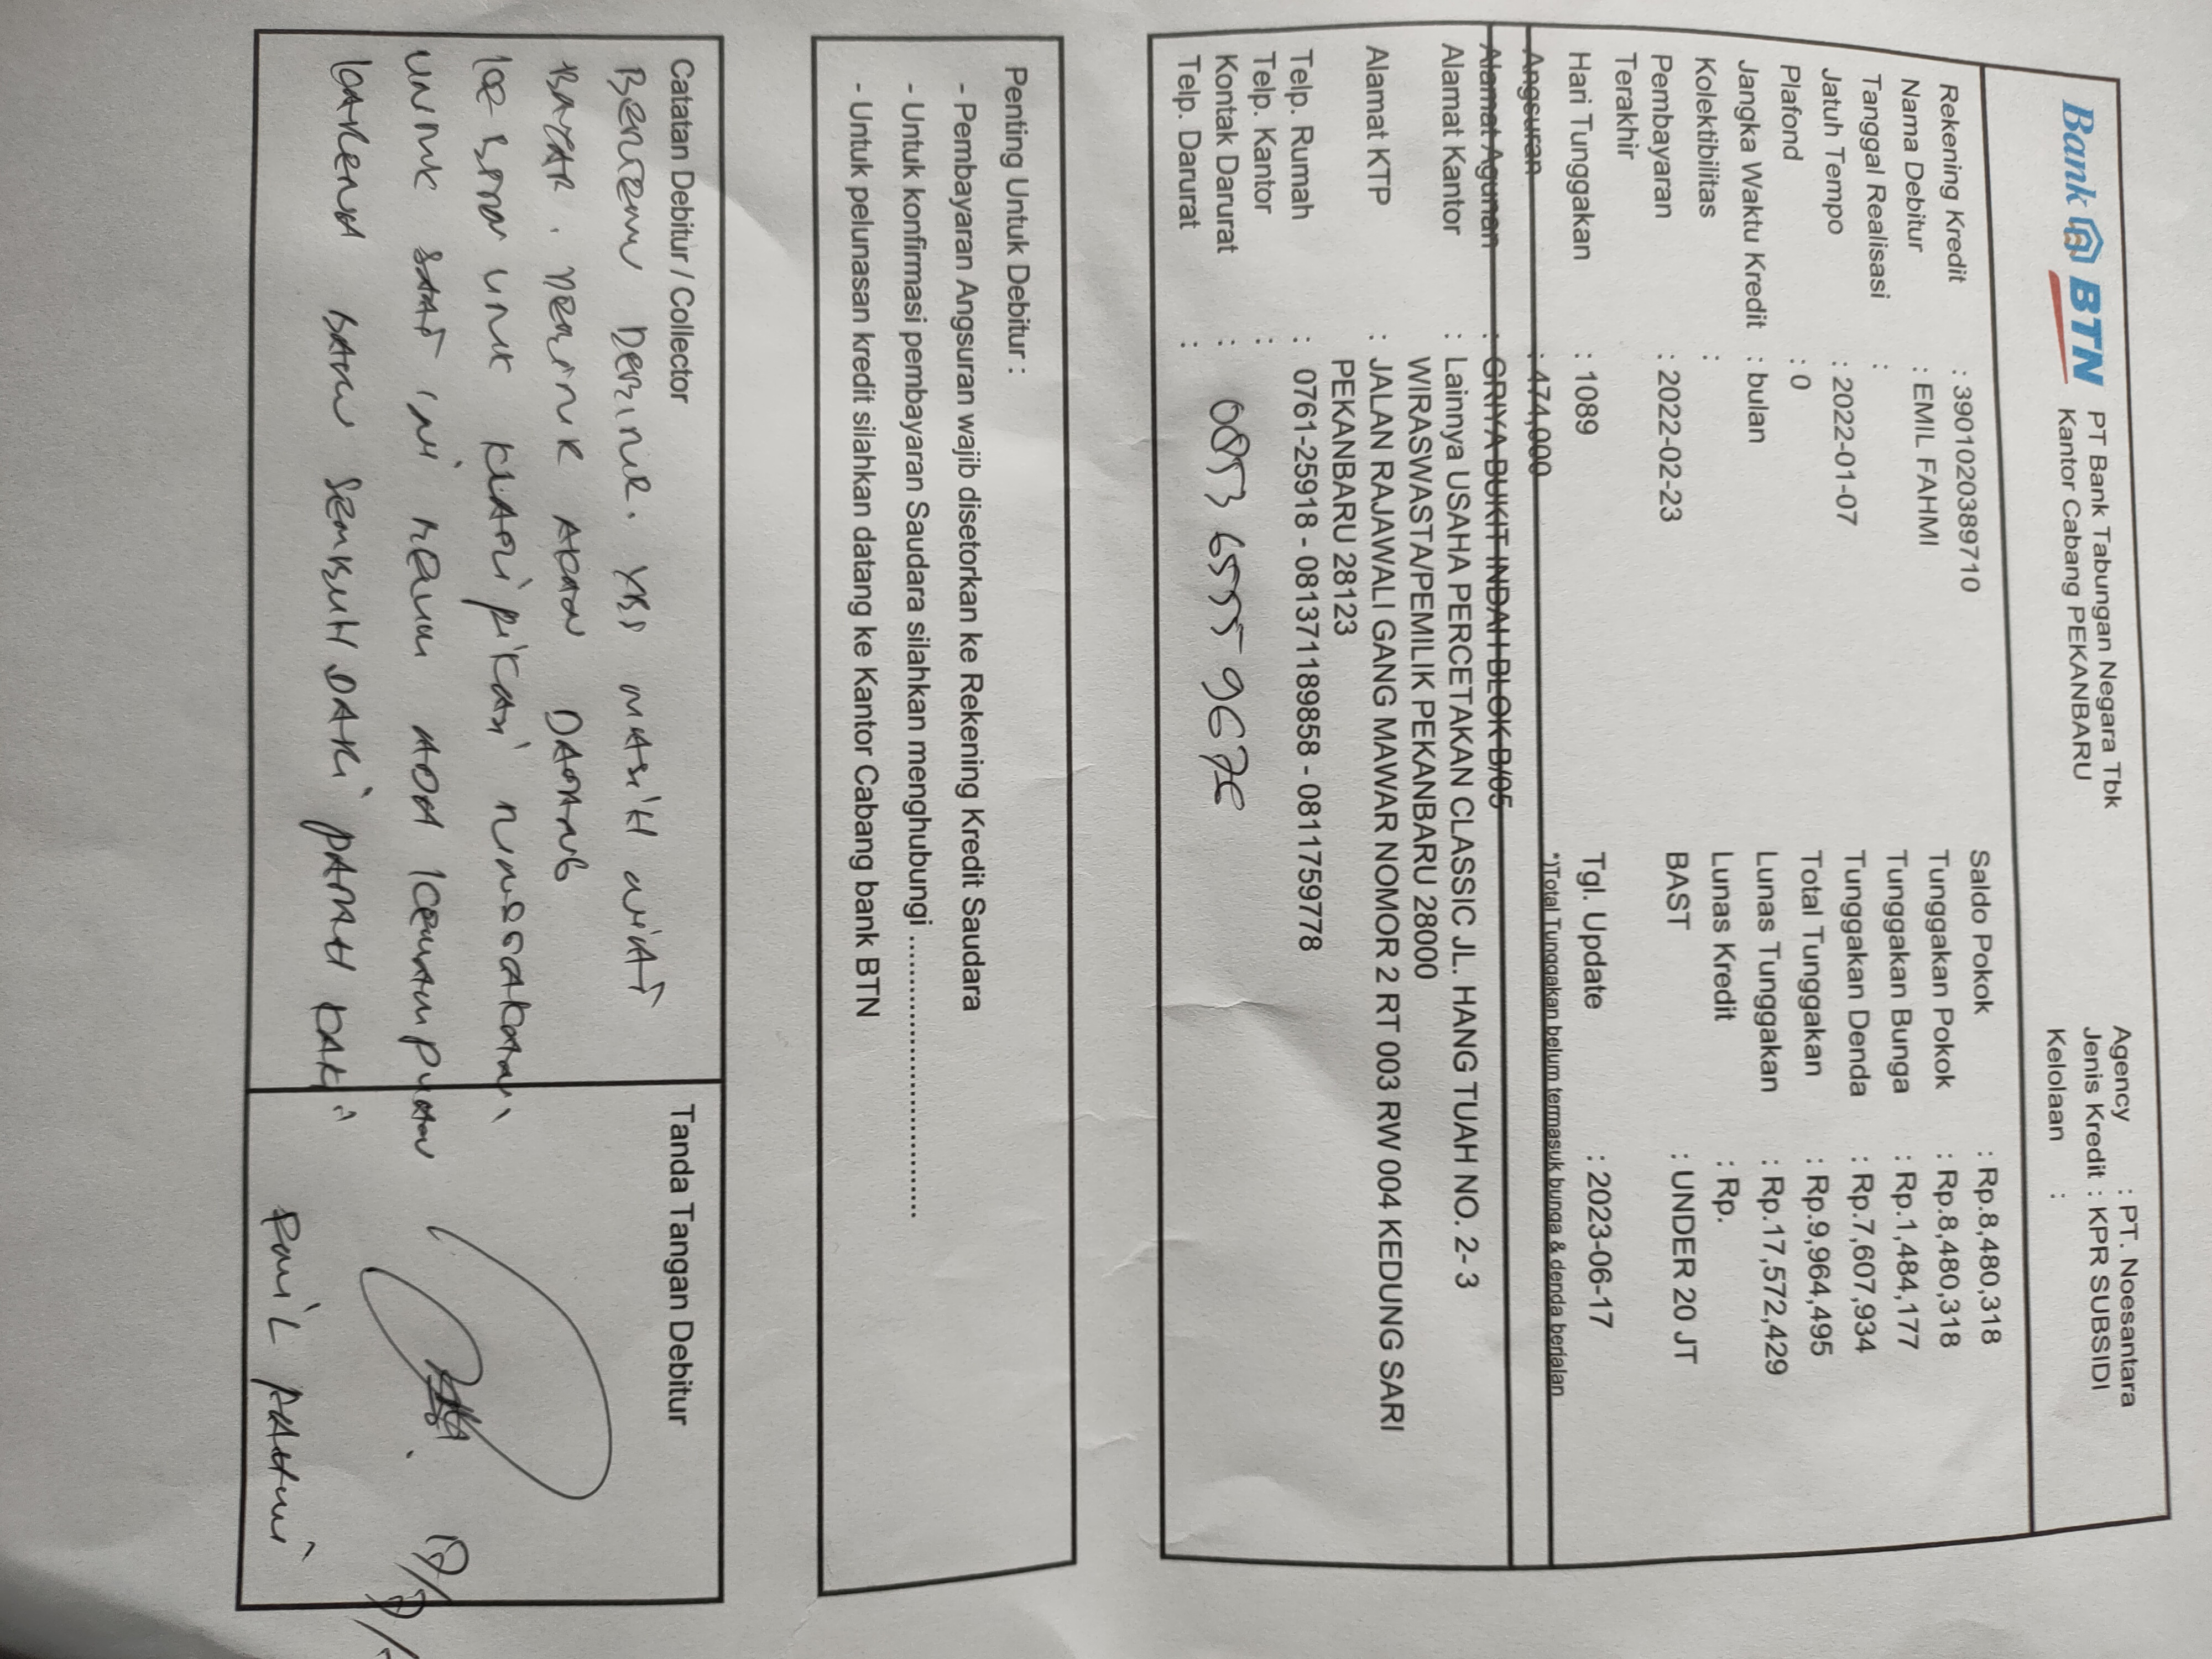 Bank BTN
PT Bank Tabungan Negara Tbk
Kantor Cabang PEKANBARU
Agency : PT. Noesantara
Jenis Kredit : KPR SUBSIDI
Kelolaan :
Rekening Kredit : 3901020389710
Nama Debitur : EMIL FAHMI
Tanggal Realisasi :
Jatuh Tempo : 2022-01-07
Plafond : 0
Jangka Waktu Kredit : bulan
Kolektibilitas :
Pembayaran Terakhir : 2022-02-23
Hari Tunggakan : 1089
Angsuran : 474,000
Saldo Pokok : Rp.8,480,318
Tunggakan Pokok : Rp.8,480,318
Tunggakan Bunga : Rp.1,484,177
Tunggakan Denda : Rp.7,607,934
Total Tunggakan : Rp.9,964,495
Lunas Tunggakan : Rp.17,572,429
Lunas Kredit : Rp.
BAST : UNDER 20 JT
Tgl. Update : 2023-06-17
*)Total Tunggakan belum termasuk bunga & denda berjalan
Alamat Agunan : GRIYA BUKIT INDAH BLOK B/05
Alamat Kantor : Lainnya USAHA PERCETAKAN CLASSIC JL. HANG TUAH NO. 2- 3
WIRASWASTA/PEMILIK PEKANBARU 28000
Alamat KTP : JALAN RAJAWALI GANG MAWAR NOMOR 2 RT 003 RW 004 KEDUNG SARI
PEKANBARU 28123
Telp. Rumah : 0761-25918 - 081371189858 - 0811759778
Telp. Kantor :
Kontak Darurat :
Telp. Darurat :
Penting Untuk Debitur :
- Pembayaran Angsuran wajib disetorkan ke Rekening Kredit Saudara
- Untuk konfirmasi pembayaran Saudara silahkan menghubungi ..............................
- Untuk pelunasan kredit silahkan datang ke Kantor Cabang bank BTN
Catatan Debitur / Collector
MASIH NIAT
BAYAR. AKAN DATANG
UNTUK
UNTUK SAAT INI BELUM ADA KEMAMPUAN
KARENA BARU SEMBUH DARI PATAH KAKI
Tanda Tangan Debitur
EMIL FAHMI